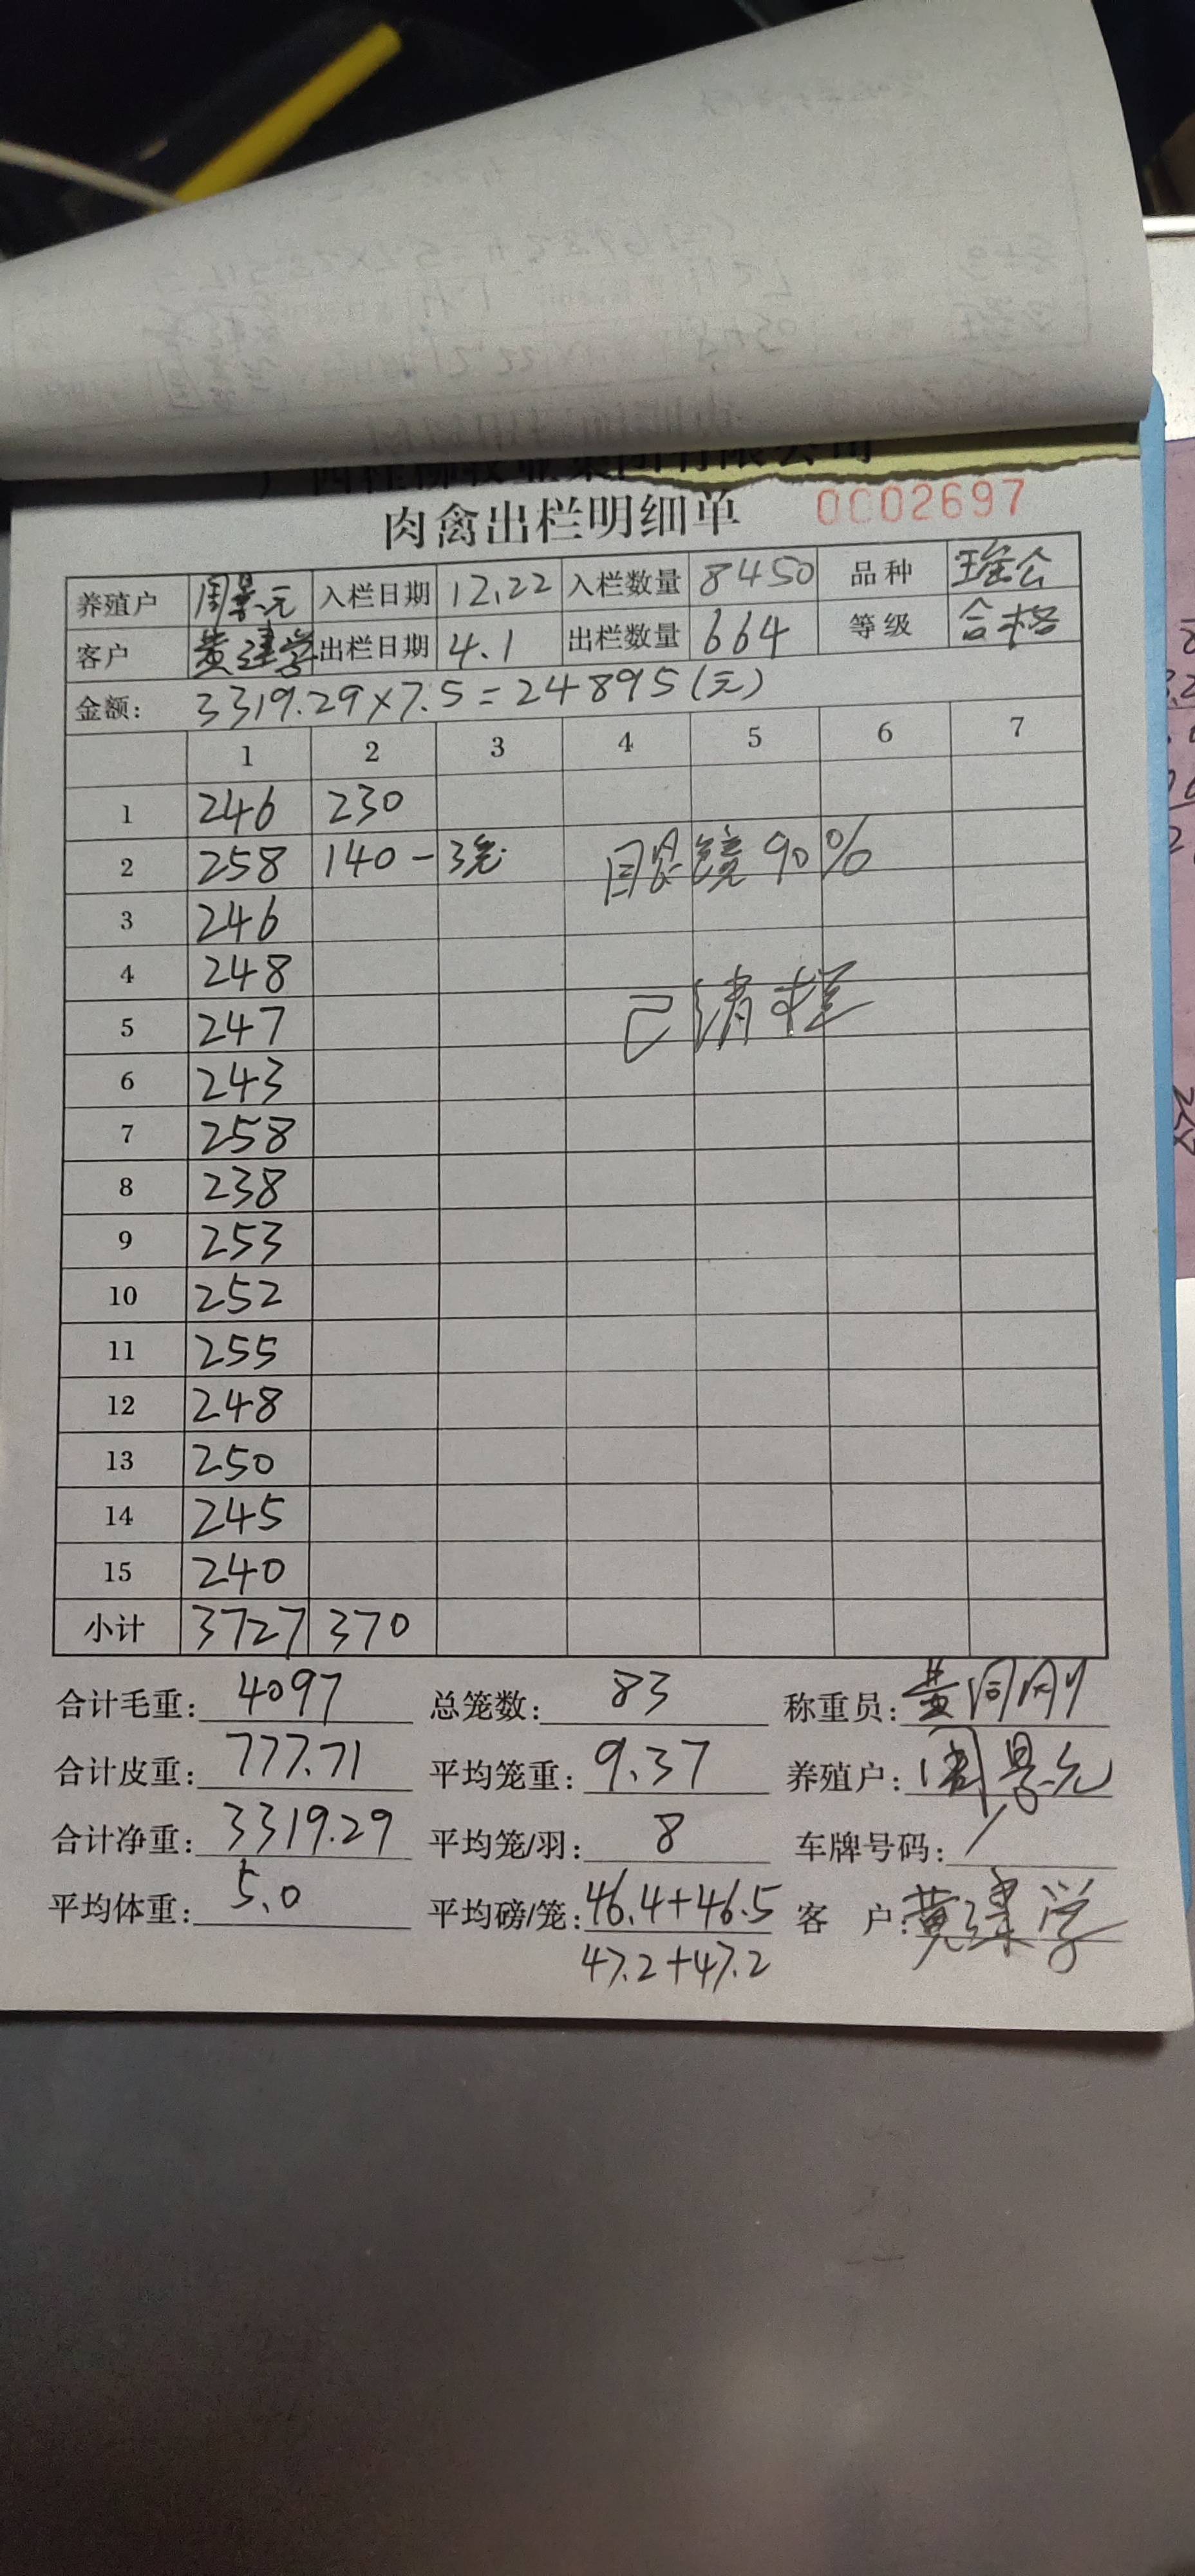 肉禽出栏明细单 0002697
养殖户 周景元 入栏日期 12.22 入栏数量 8450 品种 瑶公
客户 黄建学 出栏日期 4.1 出栏数量 664 等级 合格
金额: 3319.29×7.5=24895(元)
1 2 3 4 5 6 7
1 246 230
2 258 140-3笼 眼镜90%
3 246
4 248
5 247 已清栏
6 243
7 258
8 238
9 253
10 252
11 255
12 248
13 250
14 245
15 240
小计 3727 370
合计毛重: 4097 总笼数: 83 称重员: 黄
合计皮重: 777.71 平均笼重: 9.37 养殖户: 周景元
合计净重: 3319.29 平均笼/羽: 8 车牌号码: /
平均体重: 5.0 平均磅/笼: 46.4+46.5 客户: 黄建学
47.2+47.2